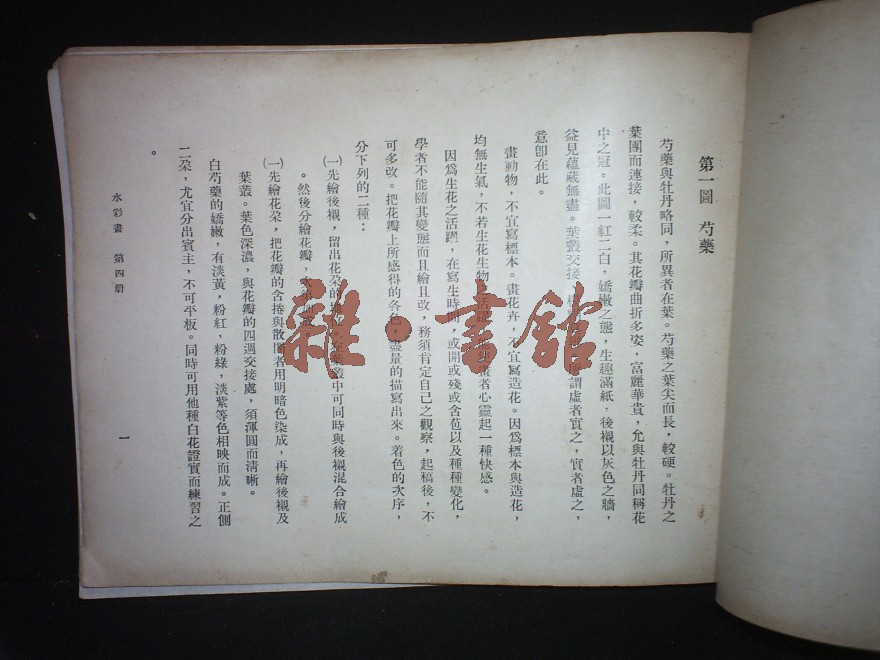 第一圖　芍藥
芍藥與牡丹略同，所異者在葉。芍藥之葉尖而長，較硬。牡丹之
葉團而連接，較柔。其花瓣曲折多姿，富麗華貴，允與牡丹同稱花
中之冠。此圖一紅二白，嬌嫩之態，生趣滿紙，後襯以灰色之牆，
益見蘊藏無盡。葉叢交接，所謂虛者實之，實者虛之，
意卽在此。
畫動物，不宜寫標本。畫花卉，不宜寫造花。因爲標本與造花，
均無生氣，不若生花生物之活潑，畫者心靈起一種快感。
因爲生花之活躍，在寫生時間，或開或殘或含苞以及種種變化，
學者不能隨其變態而且繪且改，務須肯定自己之觀察，起稿後，不
可多改。把花瓣上所感得的各色，盡量的描寫出來。着色的次序，
分下列的二種：
㈠先繪後襯，留出花朶的葉叢中可同時與後襯混合繪成
。然後分繪花瓣，
㈠先繪花朶，把花瓣的含捲與散開者用明暗色染成，再繪後襯及
葉叢。葉色深濃，與花瓣的四週交接處，須渾圓而清晰。
白芍藥的嬌嫩，有淡黃，粉紅，粉綠，淡紫等色相映而成。正側
二朶，尤宜分出賓主，不可平板。同時可用他種白花證實而練習之
。
水彩畫　第四册
一
雜·書館